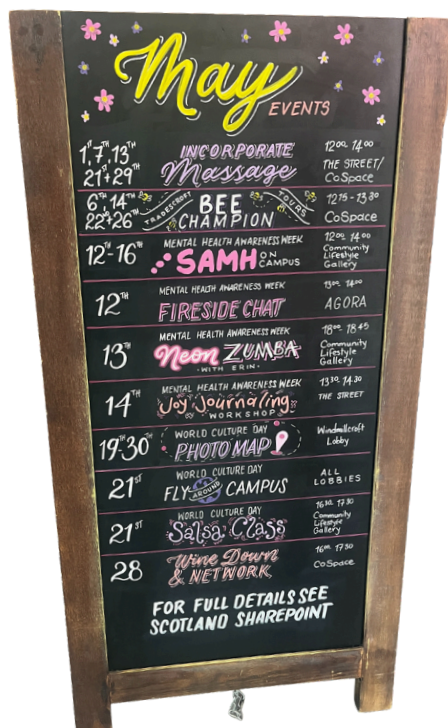 May
EVENTS
1ST, 7TH, 13TH
21ST + 29TH
INCORPORATE
Massage
12:00 14:00
THE STREET/
CoSpace
6TH, 14TH
22ND + 26TH
TRADESCROFT
BEE
CHAMPION
TOURS
12:15 - 13:30
CoSpace
12TH - 16TH
MENTAL HEALTH AWARENESS WEEK
SAMH ON
CAMPUS
12:00 14:00
Community
Lifestyle
Gallery
12TH
MENTAL HEALTH AWARENESS WEEK
FIRESIDE CHAT
13:00 14:00
AGORA
13TH
MENTAL HEALTH AWARENESS WEEK
Neon ZUMBA
- WITH ERIN -
18:00 - 18:45
Community
Lifestyle
Gallery
14TH
MENTAL HEALTH AWARENESS WEEK
Joy Journaling
WORKSHOP
13:30 14:30
THE STREET
19TH-30TH
WORLD CULTURE DAY
PHOTO MAP
Windmillcroft
Lobby
21ST
WORLD CULTURE DAY
FLY AROUND CAMPUS
ALL
LOBBIES
21ST
WORLD CULTURE DAY
Salsa Class
16:30 17:30
Community
Lifestyle
Gallery
28
Wine Down
& NETWORK
16:00 17:30
CoSpace
FOR FULL DETAILS SEE
SCOTLAND SHAREPOINT